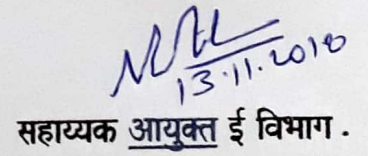 13.11.2018
सहाय्यक आयुक्त ई विभाग .